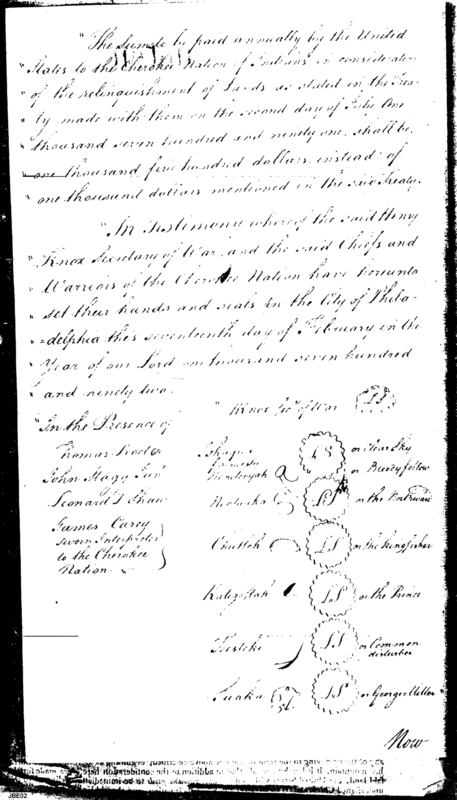 "The Sum to be paid annually by the United
"States to the Cherokee Nation of Indians in consideration
"of the relinquishment of Lands as stated in the Trea-
"ty made with them on the second day of July One
"thousand seven hundred and ninety one shall be
"one thousand five hundred dollars instead of
"one thousand dollars mentioned in the said Treaty.
"In Testimony whereof the said Henry
"Knox Secretary of War, and the said Chiefs and
"Warriors of the Cherokee Nation have hereunto
"set their hands and seals in the City of Phila-
"=delphia this seventeenth day of February in the
"Year of our Lord one thousand seven hundred
"and ninety two.
"In the Presence of
Thomas Procter
John Stagg Junr
Leonard D Shaw
James Carey
Sworn Interpreter
to the Cherokee
Nation
"HKnox Secy of War LS
LS or Clear Sky
or Bloody fellow
LS or the Northward
Chutloh LS or the Kingfisher
Katigoslah LS or the Prince
Teesteke LS or Common
disturber
Suaka LS or George Miller
Now
JBE02